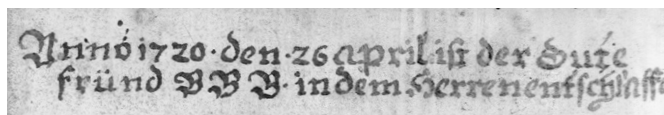 Anno 1720. den. 26 april ist der Gute
fründ B B B. in dem Herren entschlaffe